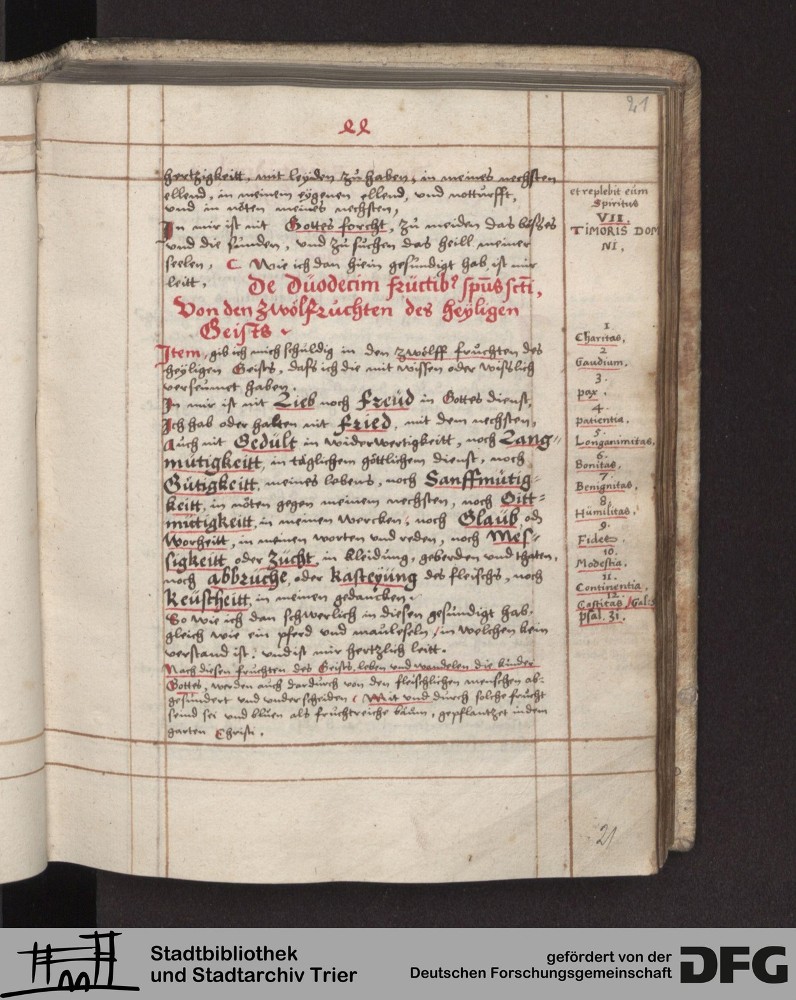 21
ll
hertzigkeitt, mit leyden zu haben, in meines nechsten
ellend, in meinem eygenen ellend, und notturfft,
und in nöten meines nechsten,
In mir ist nit Gottes forcht, zu meiden das böszes
und die sunden, und zu suchen das heill meiner
seelen, C Wie ich dan hiein gesundigt hab, ist mir
leitt,
De Düodecim früctib9 spūs scti,
Von den zwölfruchten des heyligen
Geists
Item, gib ich mich schuldig in den zwölff fruchten des
heyligen Geists, dass ich die mit wissen oder
verseumet haben.
In mir ist nit Lieb noch Freüd in Gottes dienst,
Ich hab oder halten nit Fried, mit dem nechsten,
Auch nit Gedult in widerwertigkeitt, noch Lang=
mütigkeitt, in täglichem göttlichem dienst, noch
Gütigkeitt, meines lebens, noch Sanffmütig=
keitt, in nöten gegen meinem nechsten, noch
mütigkeitt, in meinen wercken, noch Glaüb, od
Worheitt, in meinen worten und reden, noch Mes=
sigkeitt oder Zücht, in kleidung, geberden und thaten,
noch abbrüche, oder Kasteyüng des fleischs, noch
Keüscheitt, in meinen gedancken.
So wie ich dan schwerlich in diesen gesundigt hab,
gleich wie ein pferd und mauleseln, in welchen kein
verstand ist, und ist mir hertzlich leitt.
Nach diesen fruchten des Geists, leben und wandelen die kinder
Gottes, werden auch dardurch von den fleischlichen menschen ab=
gesundert und underscheiden, Mit und durch solche frucht
seind sei und bluen als fruchtreiche bäum, gepflantzet in dem
garten Christi.
et replebit eum
Spiritus
VII.
TIMORIS DOMI
NI,
1
Charitas,
2
Gaudium,
3.
pax,
4.
patientia,
5.
Longanimitas,
6.
Bonitas,
7
Benignitas,
8
Humilitas,
9.
Fides,
10.
Modestia,
11.
Continentia,
12.
Castitas, Gal:5
Psal. 31.
21
Stadtbibliothek
und Stadtarchiv Trier
gefördert von der
Deutschen Forschungsgemeinschaft
DFG